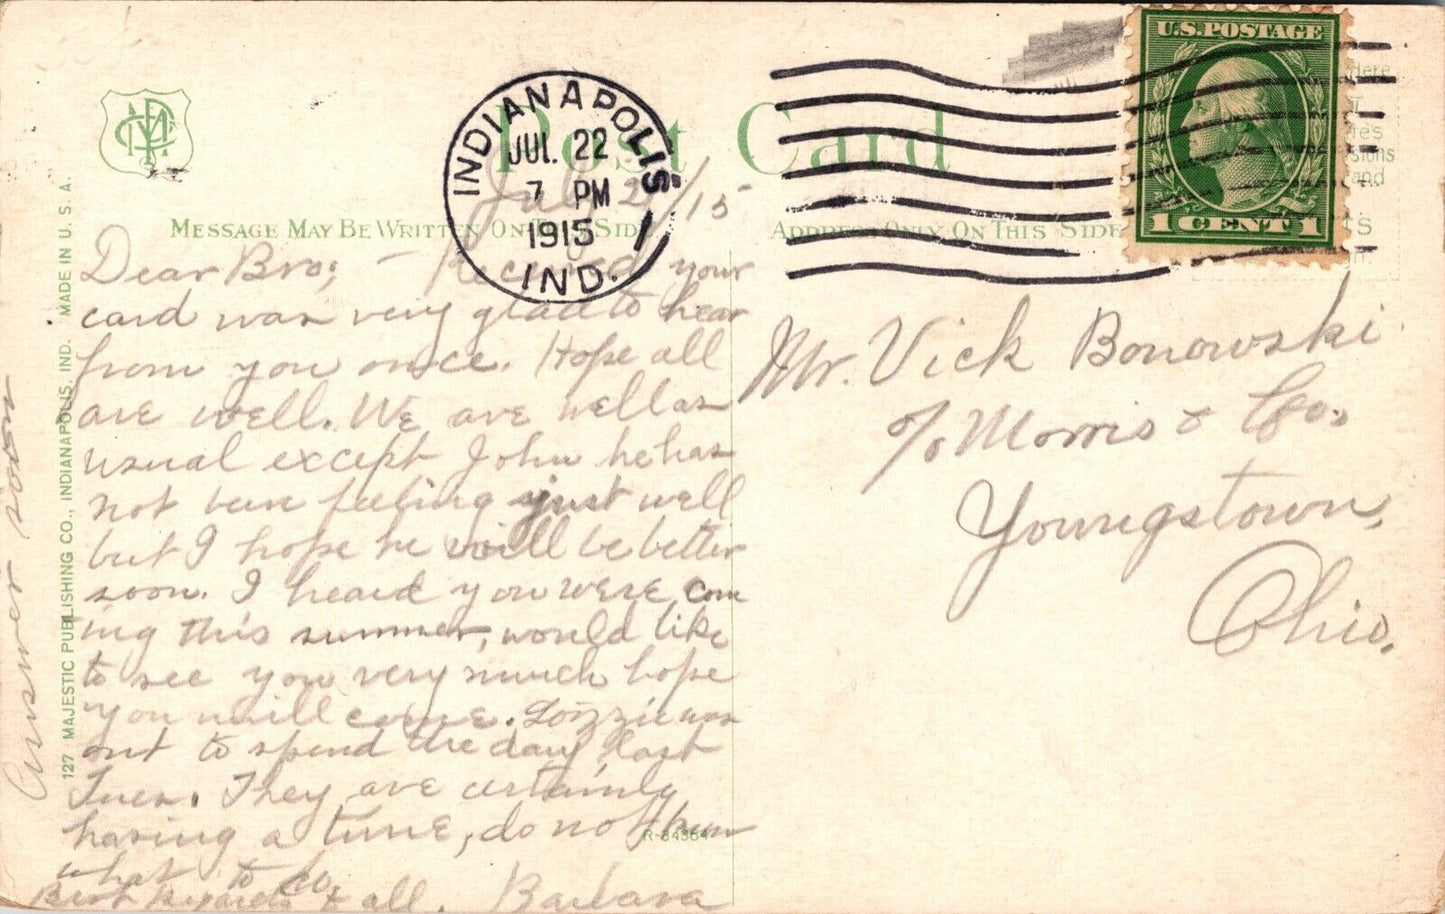 U.S. POSTAGE
1 CENT 1
INDIANAPOLIS
JUL 22
7 PM
1915
IND.
Post Card
MESSAGE MAY BE WRITTEN ON THIS SIDE
ADDRESS ONLY ON THIS SIDE
127 MAJESTIC PUBLISHING CO., INDIANAPOLIS, IND. MADE IN U. S. A.
July /15
Dear Bro; – Received your
card was very glad to hear
from you once. Hope all
are well. We are well as
usual except John he has
not been feeling just well
but I hope he will be better
soon. I heard you were com
ing this summer, would like
to see you very much hope
you will come. Lizzie was
out to spend the day last
Tues. They are certainly
having a time, do not know
what to do.
Best Regards to all. Barbara
Answer soon
R-84364
Mr. Vick Bonowski
c/o Morris & Co.
Youngstown,
Ohio.